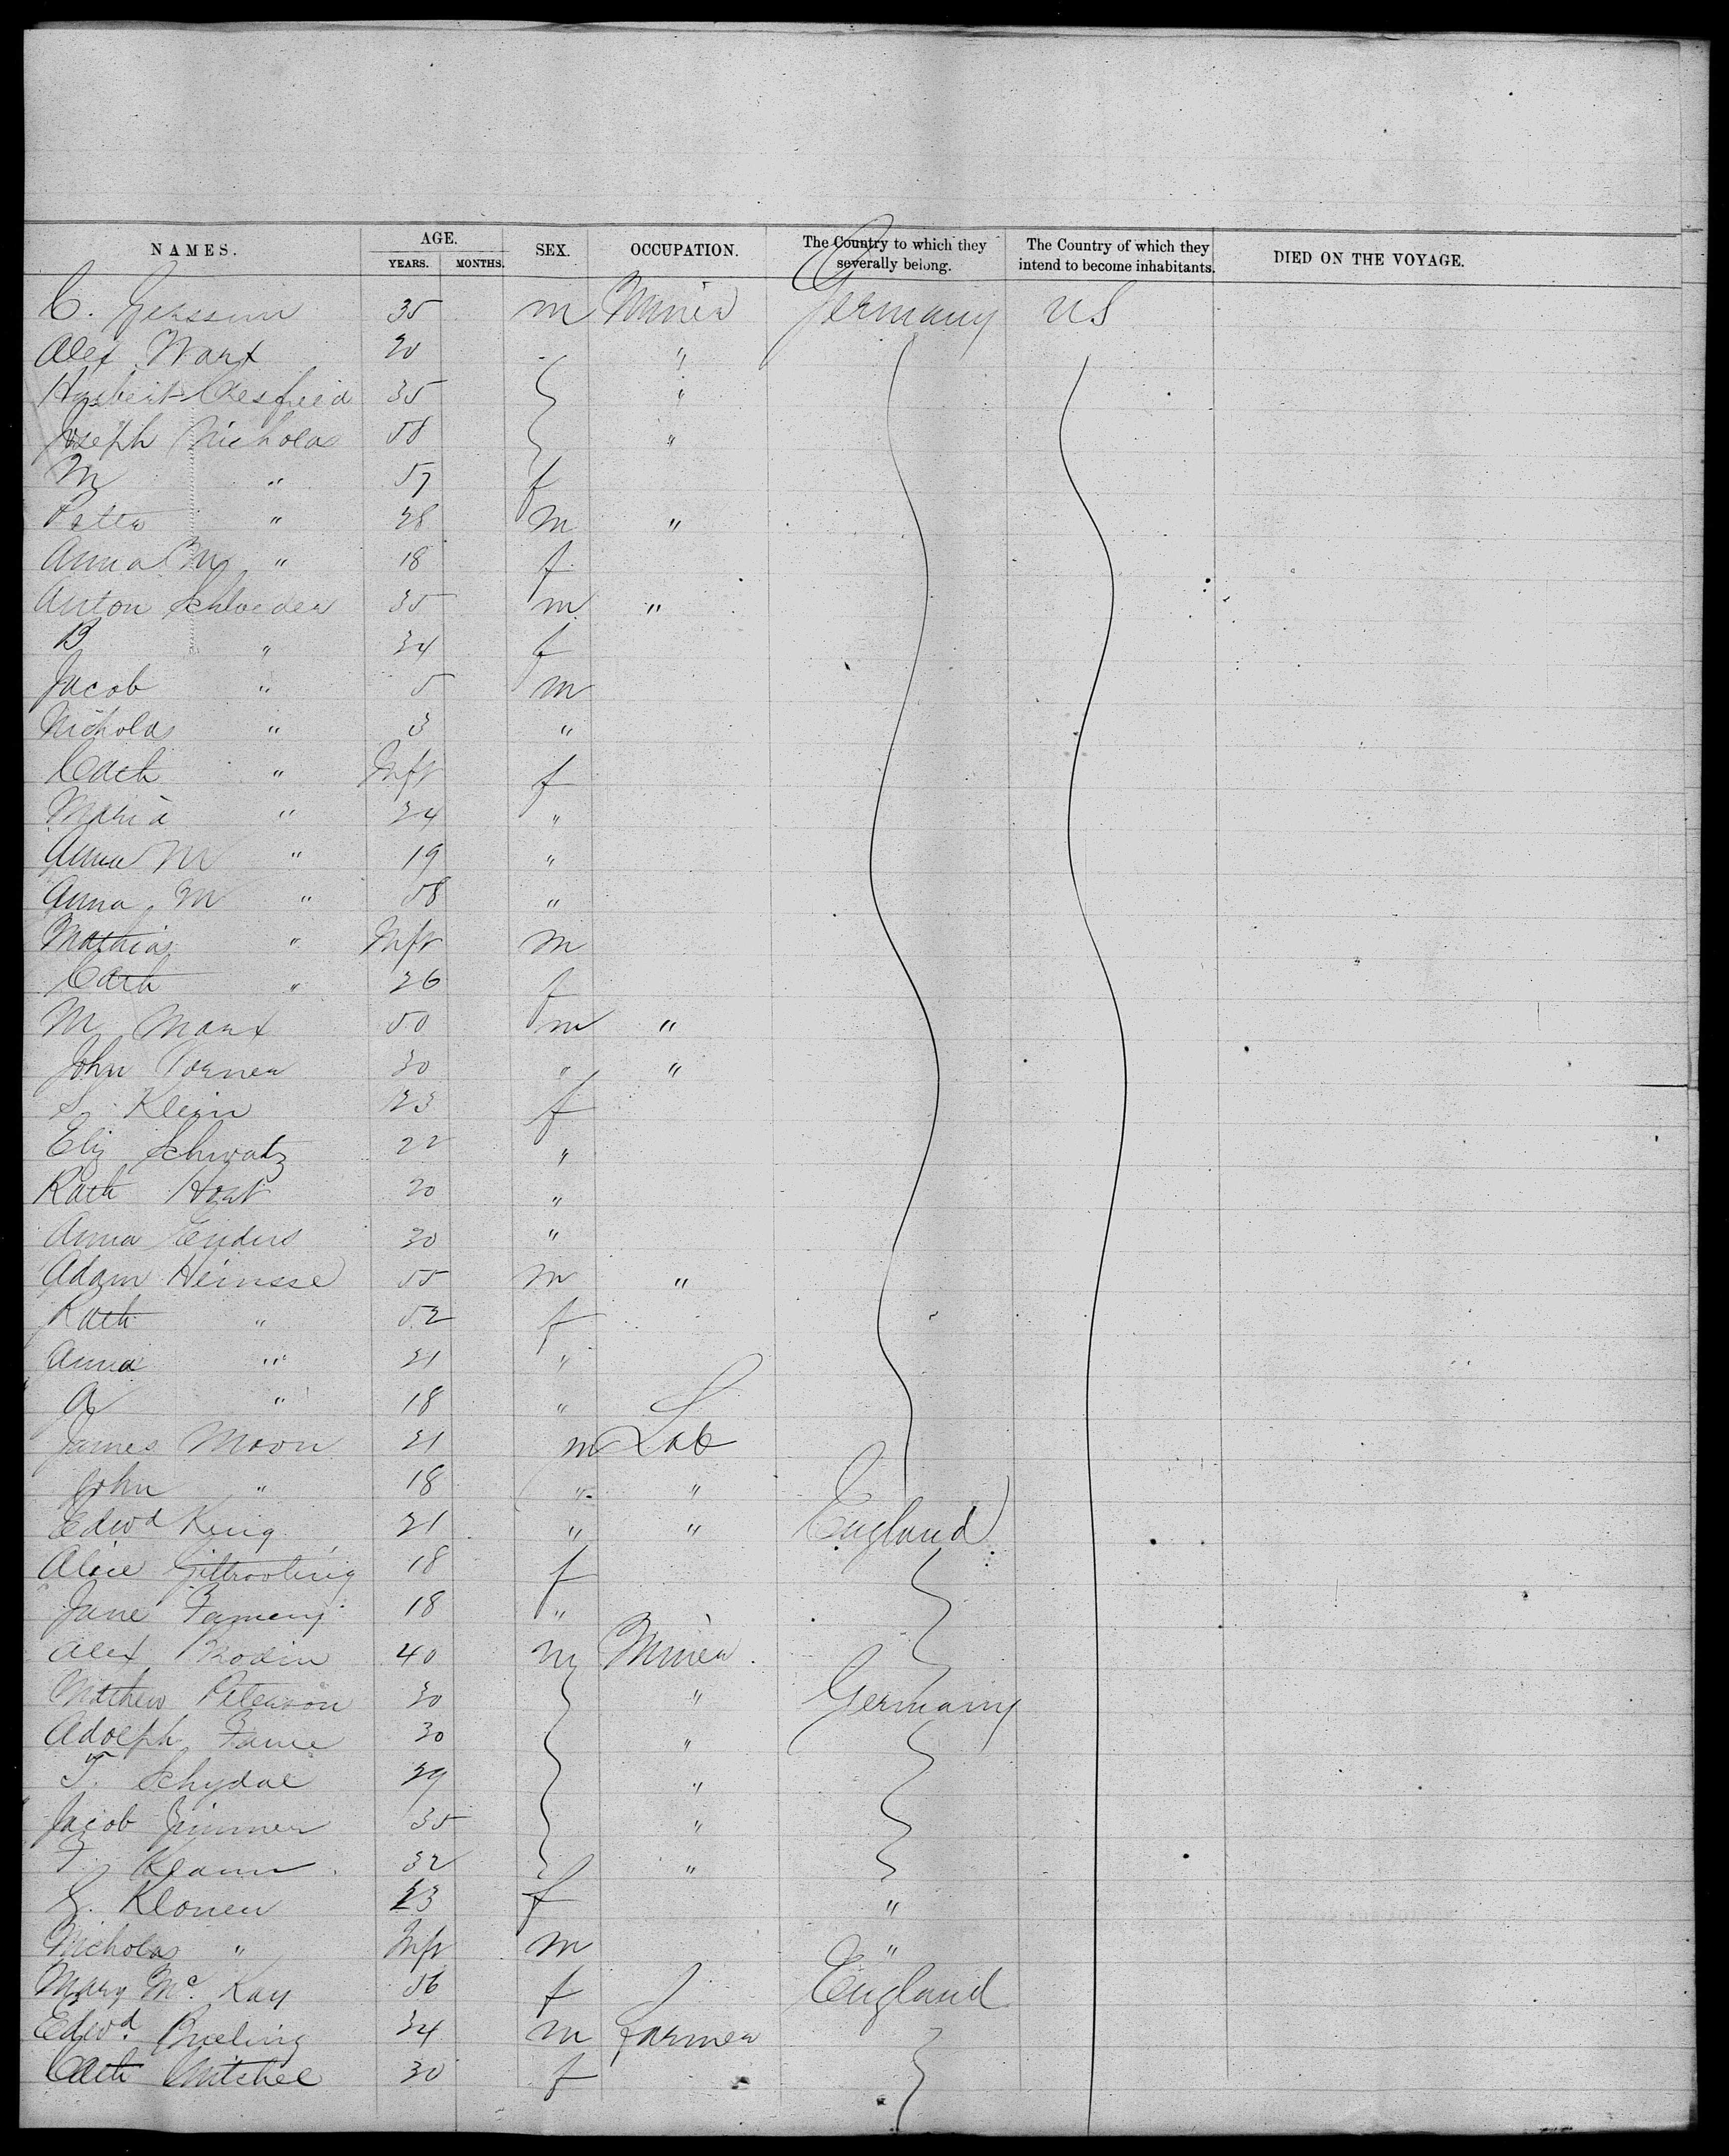 NAMES. AGE. SEX. OCCUPATION. The Country to which they severally belong. The Country of which they intend to become inhabitants. DIED ON THE VOYAGE.
YEARS. MONTHS.
C. 35 m Miner Germany US
Alex 20 "
35 "
Joseph Nicholas 58 "
M " 57 f
Peter " 28 m "
Anna M " 18 f
Anton Schloeder 35 m "
B " 34 f
Jacob " 5 m
Nicholas " 3 "
Cath " Inft f
Maria " 24 "
Anna M " 19 "
Anna M " 58 "
Mathias " Inft m
Cath " 26 f
M Marx 50 m "
John 30 " "
S. Klein 23 f
Eliz Schwatz 22 "
Kath 20 "
Anna Enders 30 "
Adam Heinsse 55 m "
Kath " 52 f
Anna " 21 "
A " 18 "
James Moon 21 m Lab
John " 18 " "
Edwd King 21 " " England
Alice 18 f
Jane 18 "
Alex Rodin 40 m Miner
Mathew Peterson 30 " Germany
Adolph 30 "
T. Schydal 29 "
Jacob Zimmer 35 "
32 "
S. Klonen 23 f "
Nicholas " Inft m "
Mary Mc. Kay 56 f England
Edwd. 34 m farmer
Cath Mitchel 30 f